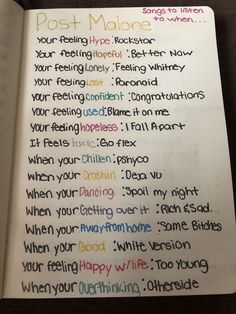 Songs to listen
to when...
Post Malone
Your feeling Hype: Rockstar
Your feeling Hopeful: Better Now
Your feeling Lonely: Feeling Whitney
Your feeling Lost: Paranoid
Your feeling confident: Congratulations
Your feeling used: Blame it on me
Your feeling hopeless: I Fall Apart
It Feels toxic: Go flex
When your Chillen: Pshyco
When your Croshin: Deja vu
When your Dancing: Spoil my night
When your Getting over it: Rich & Sad...
When your Away from home: Same Bitches
When your Good: White Version
Your feeling Happy w/ life: Too Young
When your Overthinking: Otherside